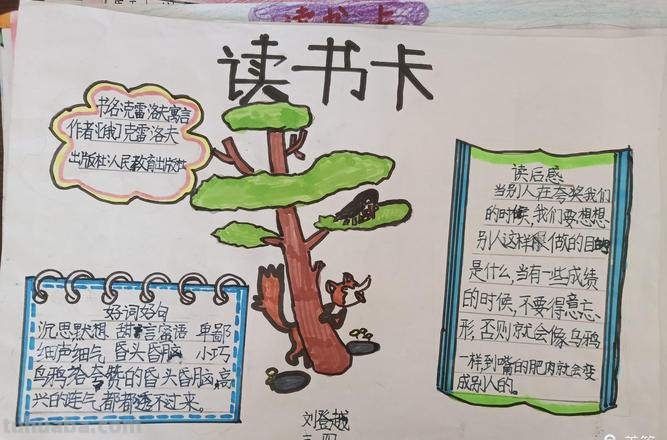 读书卡
书名:克雷洛夫寓言
作者:[俄]克雷洛夫
出版社:人民教育出版社
读后感
当别人在夸奖我们
的时候,我们要想想
别人这样做的目的
是什么,当有一些成绩
的时候,不要得意忘
形,否则就会像乌鸦
一样到嘴的肥肉就会变
成别人的。
好词好句
沉思默想 甜言蜜语 卑鄙
细声细气 昏头昏脑 小巧
乌鸦给夸赞的昏头昏脑,高
兴的连气都都透不过来。
刘登越
三 四